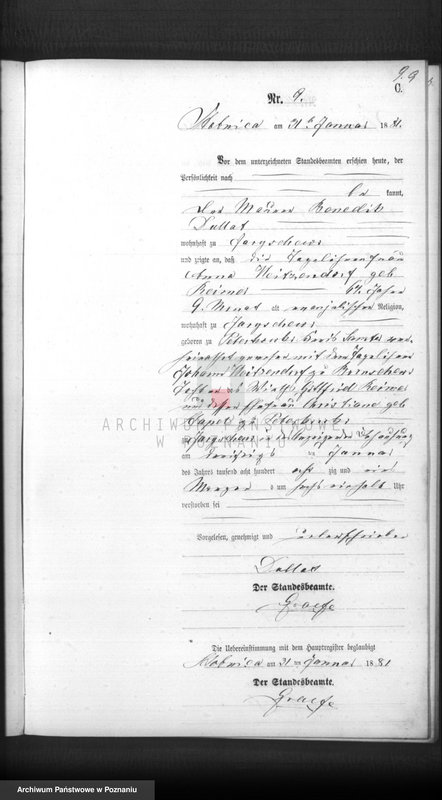 9. 9
C.
Nr. 9.
Stobnica am 31 ten Januar 1881.
Vor dem unterzeichneten Standesbeamten erschien heute, der
Persönlichkeit nach
be kannt,
der Maurer Benedikt
Dullat
wohnhaft zu Jaryschewo
und zeigte an, daß die Tagelöhnerfrau
Anna Witzendorf geb
Reimer 62 Jahre
9 Monat alt, evangelischer Religion,
wohnhaft zu Jaryschewo
geboren zu Peterkowko Kreis Samter ver
heirathet gewesen mit dem Tagelöhner
Johann Witzendorf zu
Tochter des Wirths Gottfried Reimer
und dessen Ehefrau Christiane geb
zu Peterkowko
ARCHIWUM PAŃSTWOWE
W POZNANIU
Jaryschewo in Behausung
am dreißigs ten Januar
des Jahres tausend acht hundert acht zig und ein
Morgens um sechs einhalb Uhr
verstorben sei
Vorgelesen, genehmigt und unterschrieben
Dullat
Der Standesbeamte.
Graefe
Die Uebereinstimmung mit dem Hauptregister beglaubigt
Stobnica am 31 ten Januar 1881
Der Standesbeamte.
Graefe
Archiwum Państwowe w Poznaniu